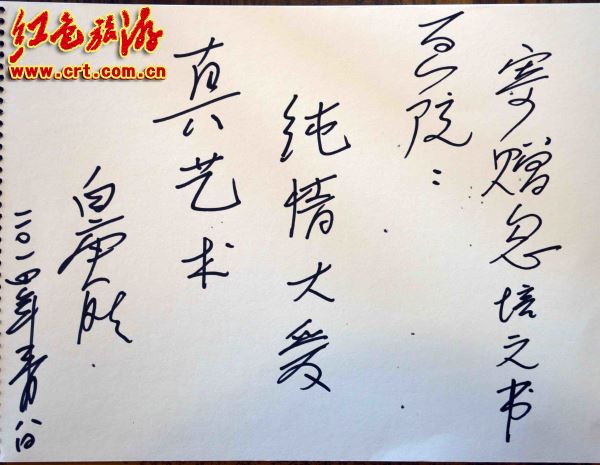 红色旅游
www.crt.com.cn
寄赠忽培元书
画院:
纯情大爱
真艺术
白庚胜
二〇一四年月八日